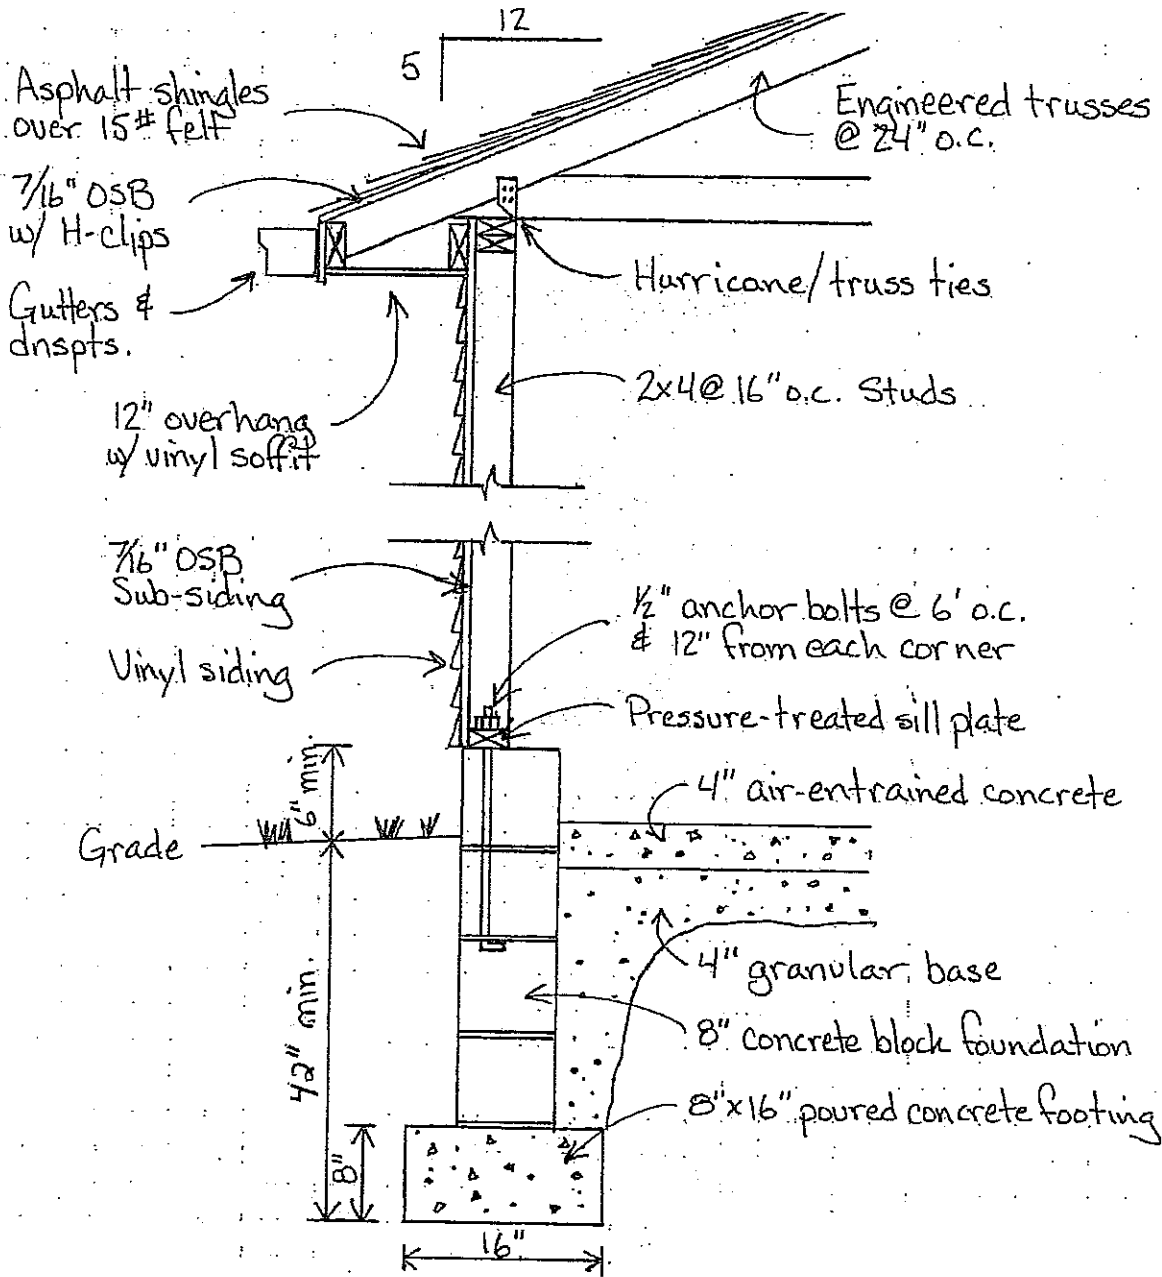 12
5
Asphalt shingles
over 15# felt
Engineered trusses
@ 24" o.c.
7/16" OSB
w/ H-clips
Hurricane/truss ties
Gutters &
dnspts.
2x4@ 16" o.c. Studs
12" overhang
w/ vinyl soffit
7/16" OSB
Sub-siding
1/2" anchor bolts @ 6' o.c.
& 12" from each corner
Vinyl siding
Pressure-treated sill plate
6" min.
4" air-entrained concrete
Grade
4" granular base
42" min.
8" concrete block foundation
8"x16" poured concrete footing
8"
16"